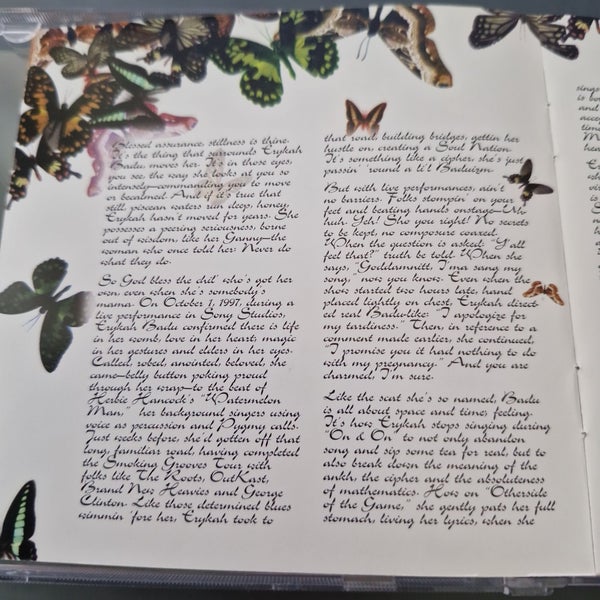 Blessed assurance, stillness is thine.
It's the thing that surrounds Erykah
Badu, moves her. It's in those eyes,
you see, the way she looks at you so
intensely—commanding you to move
or becalmed. And if it's true that
still piscean waters run deep, honey,
Erykah hasn't moved for years. She
possesses a peering seriousness, borne
out of wisdom, like her Ganny—the
woman who once told her: Never do
what they do.
So God bless the chil' who's got her
own, even when she's somebody's
mama. On October 1, 1997, during a
live performance in Sony Studios,
Erykah Badu confirmed there is life
in her womb, love in her heart, magic
in her gestures and elders in her eyes.
Called, robed, anointed, beloved, she
came—belly button poking proud
through her wrap—to the beat of
Herbie Hancock's "Watermelon
Man," her background singers using
voice as percussion and Pygmy calls.
Just weeks before, she'd gotten off that
long, familiar road, having completed
the Smoking Grooves Tour with
folks like The Roots, OutKast,
Brand New Heavies and George
Clinton. Like those determined blues
wimmin 'fore her, Erykah took to
that road, building bridges, gettin her
hustle on, creating a Soul Nation.
It's something like a cipher, she's just
passin' round a li'l Baduizm.
But with live performances, ain't
no barriers. Folks stompin' on your
feet and beating hands onstage—Uh
huh. Yeh! Sho you right! No secrets
to be kept, no composure coaxed.
When the question is asked: "Y'all
feel that?" truth be told. When she
says, "Goddamnit, I'ma sang my
song," now you know. Even when the
show started two hours late, hand
placed lightly on chest, Erykah direct-
ed real Badu-like: "I apologize for
my tardiness." Then, in reference to a
comment made earlier, she continued,
"I promise you it had nothing to do
with my pregnancy." And you are
charmed, I'm sure.
Like the scat she's so named, Badu
is all about space and time, feeling.
It's how Erykah stops singing during
"On & On" to not only abandon
song and sip some tea for real, but to
also break down the meaning of the
ankh, the cipher and the absoluteness
of mathematics. How on "Otherside
of the Game," she gently pats her full
stomach, living her lyrics, when she
sings
is bo
and
acce
time
M
hea